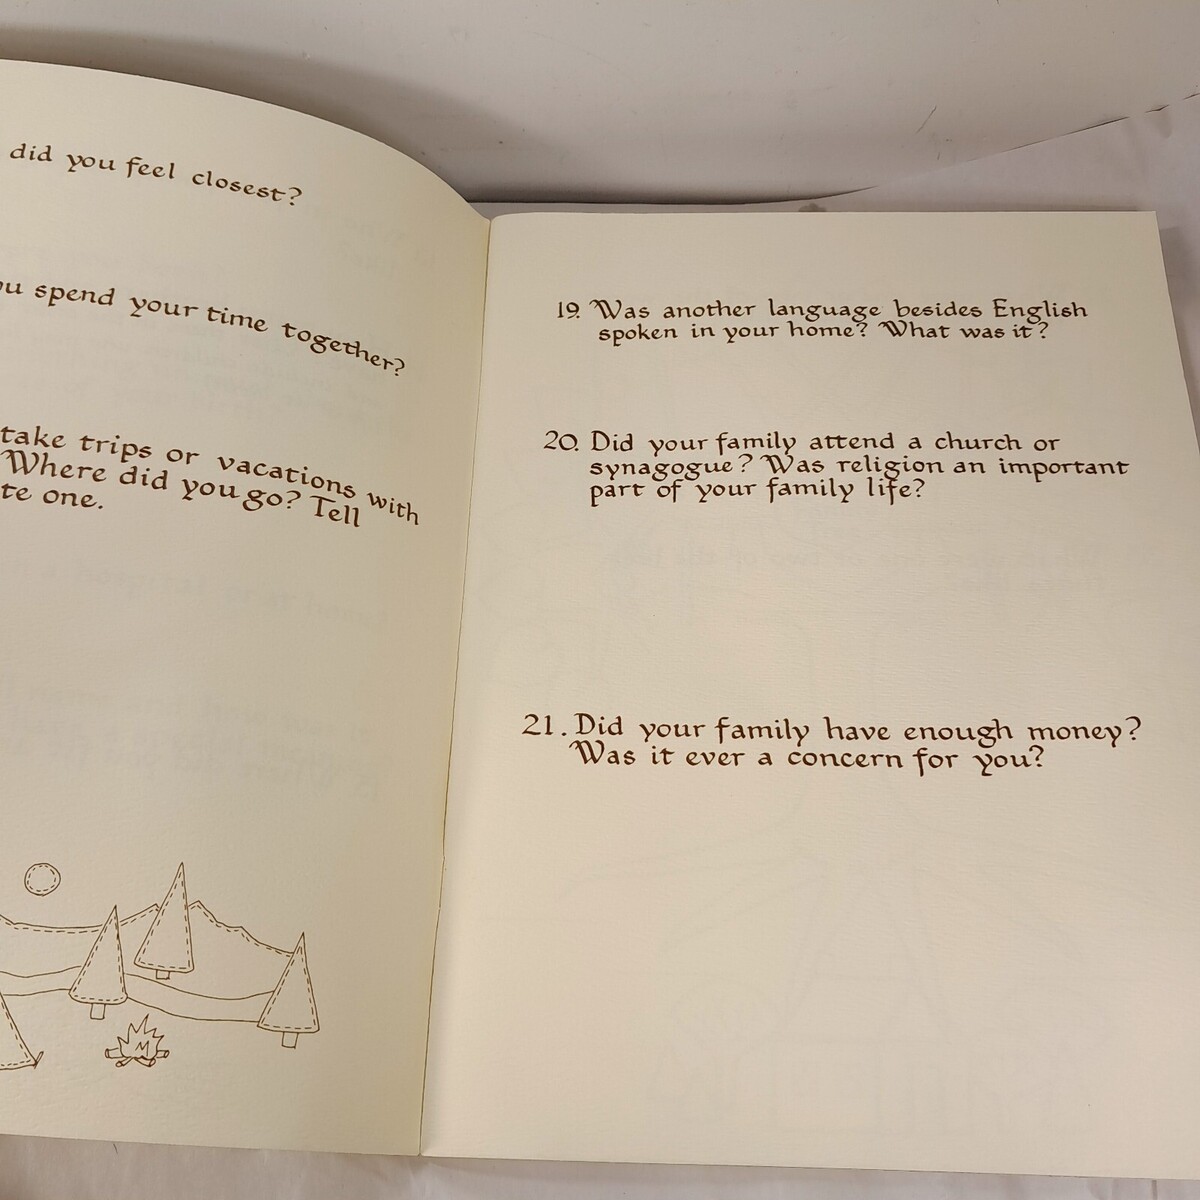 did you feel closest?
spend your time together?
take trips or vacations with
Where did you go? Tell
te one.
19. Was another language besides English
spoken in your home? What was it?
20. Did your family attend a church or
synagogue? Was religion an important
part of your family life?
21. Did your family have enough money?
Was it ever a concern for you?